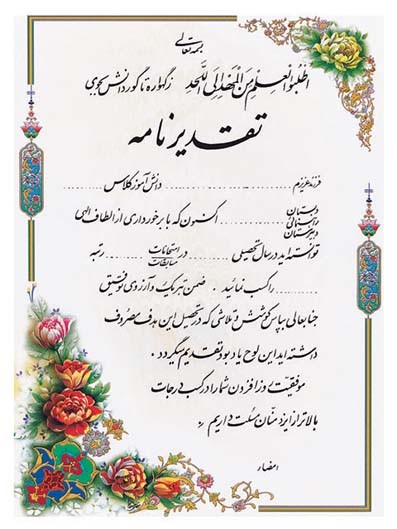 بسمه تعالی
اطلبوا العلم من المهد الی اللحد ز گهواره تا گور دانش بجوی
تقدیرنامه
فرزند عزیزم .................... دانش آموز کلاس ..........
دبستان
راهنمائی .................... اکنون که با برخورداری از الطاف الهی
دبیرستان
توانسته اید در سال تحصیلی .......... در امتحانات مسابقات .......... رتبه
.......... را کسب نمائید . ضمن تبریک و آرزوی توفیق
جنابعالی بپاس کوشش و تلاشی که در تحصیل این هدف مصروف
داشته اید این لوح یاد بود تقدیم میگردد .
موفقیت روز افزون شما را در کسب درجات
بالاتر از ایزد منان مسئلت داریم
امضاء